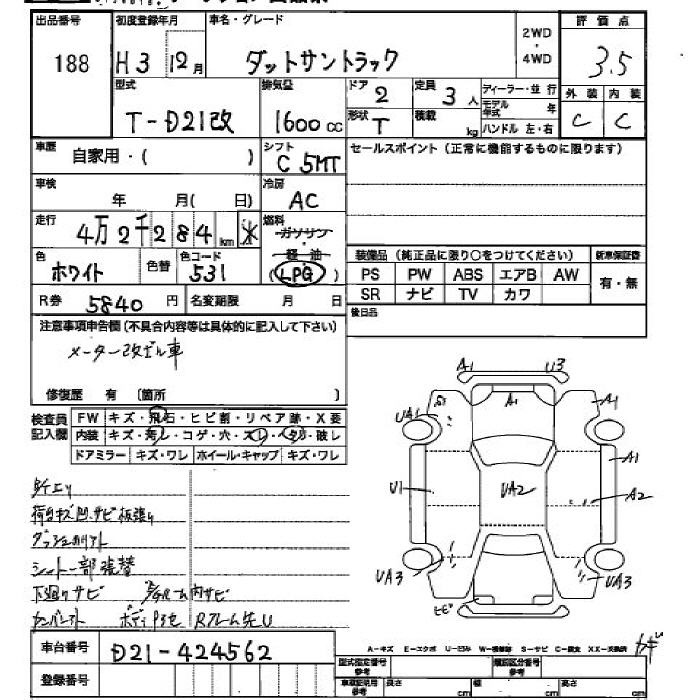 出品番号 初度登録年月 車名・グレード 評価点
188 H3 12月 ダットサントラック 2WD・4WD 3.5
型式 排気量 ドア 2 定員 3人 ディーラー・並行 外装 内装
T-D21改 1600cc 形状 T 積載 kg モデル年式 年 C C
ハンドル 左・右
車歴 自家用・( ) シフト C 5MT セールスポイント(正常に機能するものに限ります)
車検 年 月( 日) 冷房 AC
走行 4万2千284km 燃料 ガソリン
軽油
(LPG)
色 ホワイト 色替 色コード 531
装備品(純正品に限り○をつけてください) 新車保証書
PS PW ABS エアB AW 有・無
SR ナビ TV カワ
R券 5840円 名変期限 月 日
後日品
注意事項申告欄(不具合内容等は具体的に記入して下さい)
メーター改ざん車
修復歴 有 〔箇所 〕
検査員記入欄 FW キズ・飛石・ヒビ割・リペア跡・X要
内装 キズ・汚れ・コゲ・穴・スレ・切り・破レ
ドアミラー キズ・ワレ ホイール・キャップ キズ・ワレ
A1 U3
A1 A1
UA1
A1
U1 UA2 A2
UA3 UA3
ヒビ
荷台キズ凹、サビ板張り
シート一部張替
下廻りサビ
ボディ
Rフレーム先U
A-キズ E-エクボ U-凹み W-補修跡 S-サビ C-腐食 XX-交換済
車台番号 D21-424562
登録番号
型式指定番号 参考 類別区分番号 参考
車庫証明用 参考 長さ cm 幅 cm 高さ cm